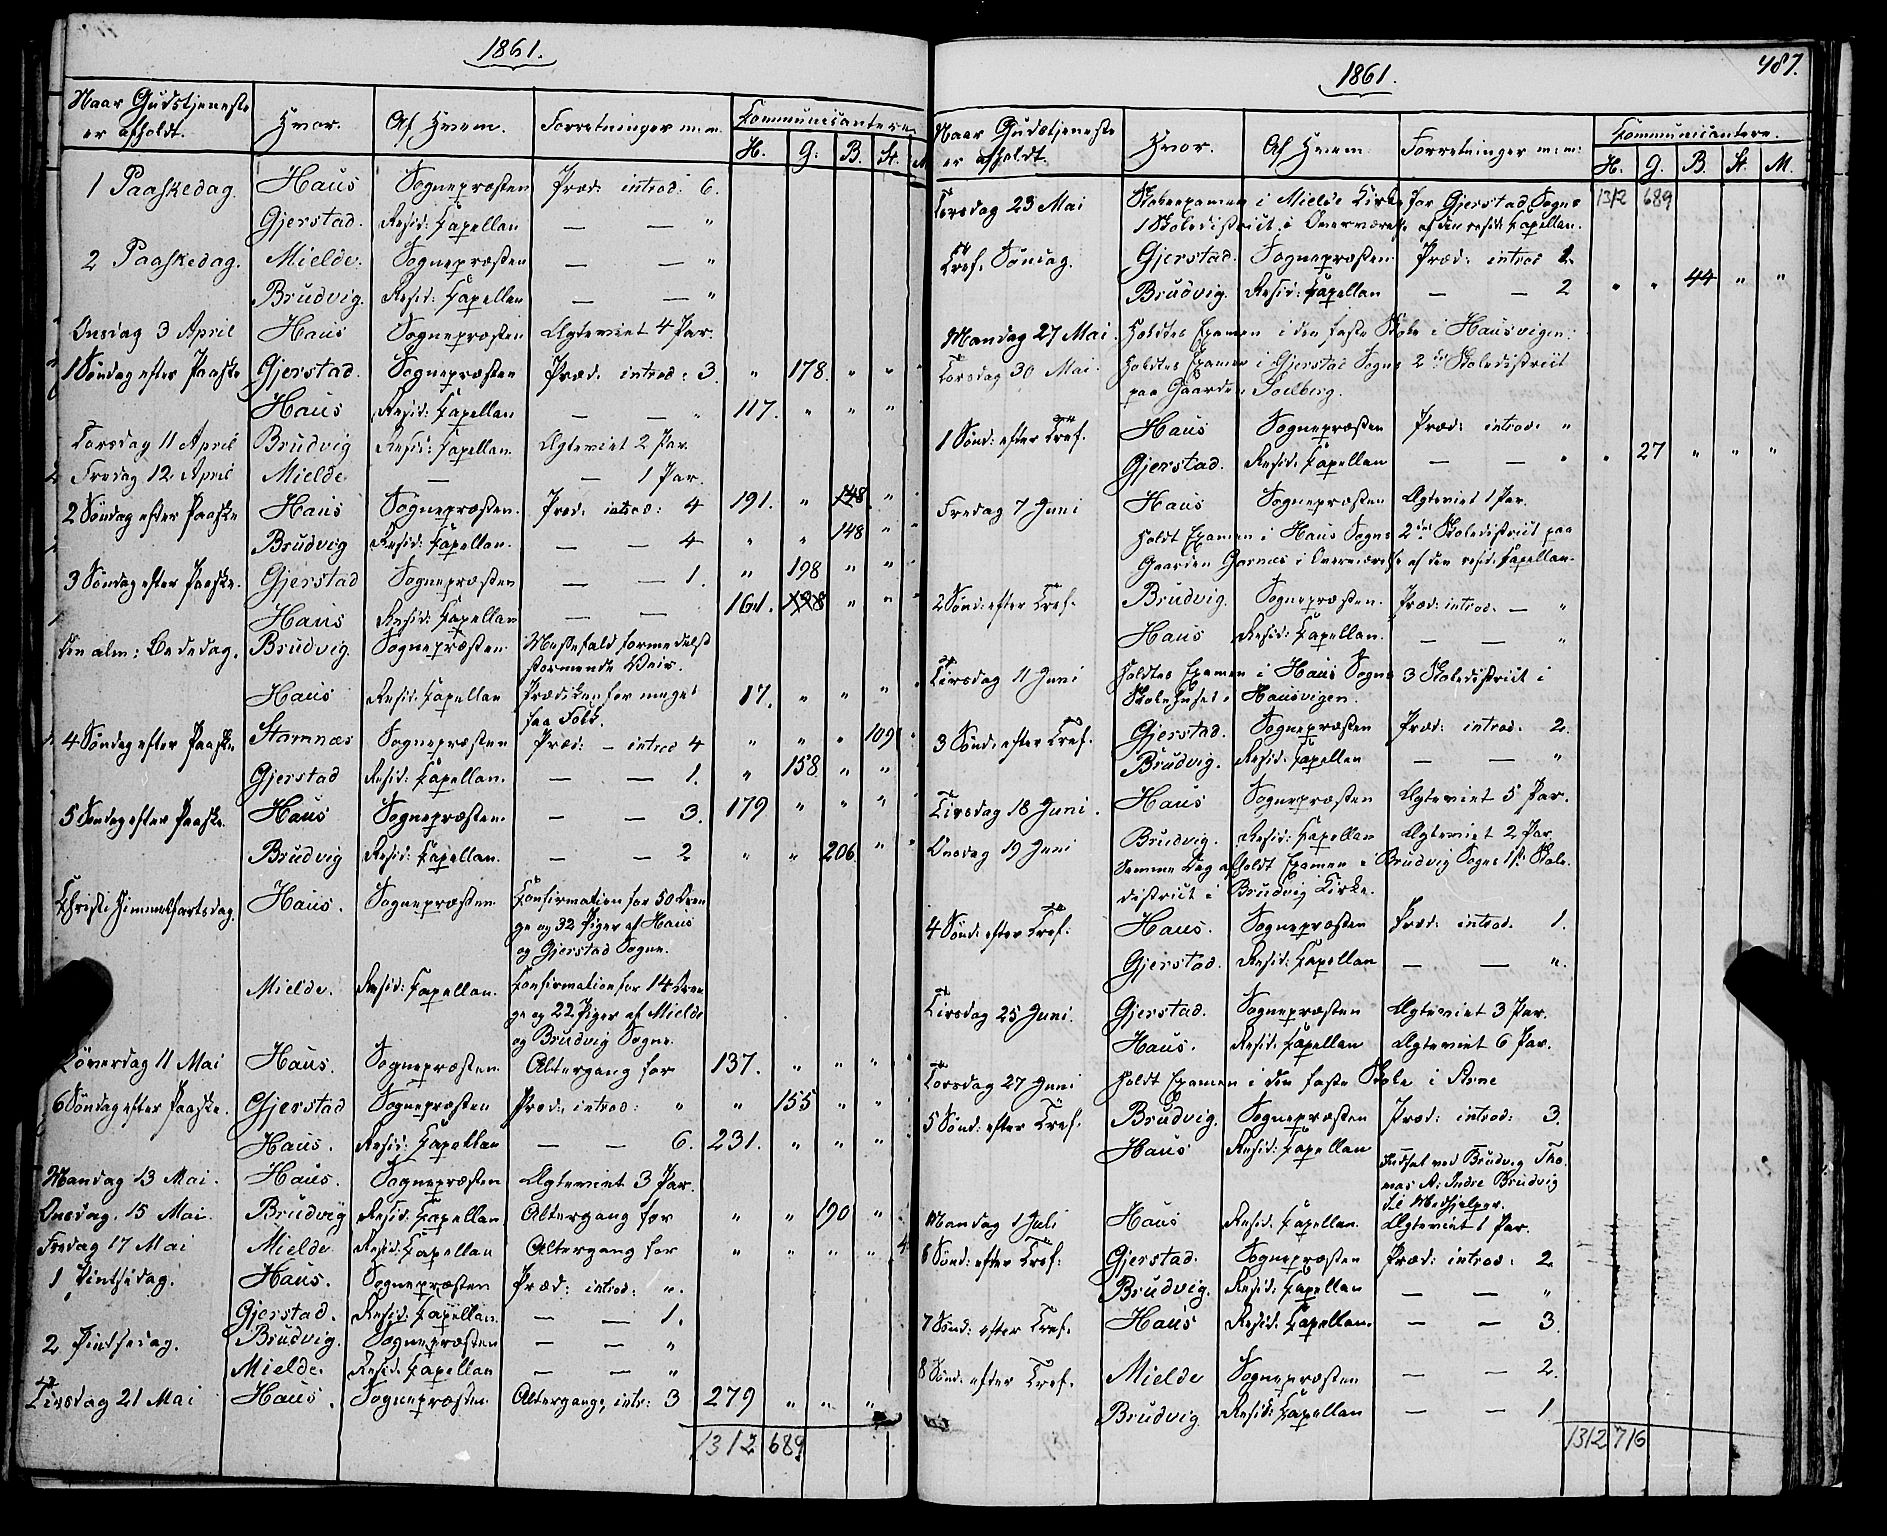 1861.
Naar Gudstjeneste er afholdt. Hvor. Af Hvem. Forretninger m:m. Communicantere
H. G: B. St. M
1 Paaskedag. Haus Sognepræsten Præd: introd: 6.
Gjerstad. Resid: Capellan — — "
2 Paaskedag. Mielde. Sognepræsten — — "
Brudvig. Resid: Capellan — — "
Onsdag 3 April Haus Sognepræsten Ægteviet 4 Par.
1 Søndag efter Paaske Gjerstad. Sognepræsten Præd. introd: 3. " 178. " "
Haus Resid: Capellan — — " 117. " " "
Torsdag 11 April Brudvig Resid: Capellan Ægteviet 2 Par.
Fredag 12 April Mielde — — 1 Par.
2 Søndag efter Paaske Haus Sognepræsten. Præd: introd: 4 191. " 148 "
Brudvig Resid: Capellan. — — 4 " " 148 "
3 Søndag efter Paaske. Gjerstad Sognepræsten — — 1. " 198 " "
Haus Resid: Capellan — — 161. 198 " "
Den alm: Bededag. Brudvig. Sognepræsten Messefald formedelst
stormende Veir.
Haus Resid: Capellan Prædiken for meget 17. " " "
faa Folk.
4 Søndag efter Paaske Stamnæs Sognepræsten Præd: — introd 4 " " " 109
Gjerstad Resid: Capellan. — — 1. " 158 " "
5 Søndag efter Paaske. Haus Sognepræsten. — — 3. 179 " " "
Brudvig Resid: Capellan. — — 2 " " 206. "
Christi Himmelfartsdag. Haus. Sognepræsten Confirmation for 50 Dren
ge og 32 Piger af Haus
og Gjerstad Sogne.
Mielde. Resid: Capellan. Confirmation for 14 Dren
ge og 22 Piger af Mielde
og Brudvig Sogne.
Löverdag 11 Mai Haus. Sognepræsten Altergang for 137. " " "
6 Søndag efter Paaske. Gjerstad Sognepræsten Præd: introd: " " 155 " "
Haus. Resid: Capellan — — 6. 231. " " "
Mandag 13 Mai. Haus. Sognepræsten Ægteviet 3 Par.
Onsdag. 15 Mai. Brudvig Resid: Capellan Altergang for " " 190 "
Fredag 17 Mai Mielde Resid: Capellan Altergang for " " " " 4
1 Pintsedag. Haus. Sognepræsten Præd: introd: ".
Gjerstad. Resid. Capellan. — — 1.
2 Pintsedag. Brudvig. Sognepræsten — — "
Mielde. Resid: Capellan — — "
Tirsdag 21 Mai Haus. Sognepræsten. Altergang, intr: 3 279 " " "
1312 689
1861.
487.
Naar Gudstjeneste er afholdt. Hvor. Af Hvem Forretninger m:m: Communicantere.
H. G. B. St. M.
Torsdag 23 Mai Skoleexamen i Mielde Kirke for Gjerstad Sogns 1312 689
1 Skoledistrict i Overværelse af den resid: Capellan.
Tref. Søndag. Gjerstad. Sognepræsten Præd: introd 1.
Brudvig. Resid: Capellan — — 2 " " 44 " "
Mandag 27 Mai. Holdtes Examen i den faste Skole i Hausvigen:
Torsdag 30 Mai. Holdtes Examen i Gjerstad Sogns 2det Skoledistrict
paa Gaarden Solberg.
1 Sønd: efter Tref. Haus Sognepræsten Præd: introd. "
Gjerstad. Resid. Capellan — — " " 27 " " "
Fredag 7 Juni Haus Sognepræsten Ægteviet 1 Par.
Holdt Examen i Haus Sogns 2det Skoledistrict paa
Gaarden Garnæs i Overværelse af den resid: Capellan.
2 Sønd: efter Tref. Brudvig. Sognepræsten. Præd: introd. — "
Haus Resid: Capellan. — — "
Tirsdag 11 Juni Holdtes Examen i Haus Sogns 3 Skoledistrict i
Skolehuset i Hausvigen.
3 Sønd: efter Tref. Gjerstad. Sognepræsten Præd: introd. 2.
Brudvig. Resid: Capellan — — "
Tirsdag 18 Juni. Haus Sognepræsten Ægteviet 5 Par.
Onsdag 19 Juni Brudvig. Resid: Capellan Ægteviet 2 Par
Samme Dag afholdt Examen i Brudvig Sogns 1ste Skole-
district i Brudvig Kirke.
4 Sønd: efter Tref: Haus. Sognepræsten Præd: introd. 1.
Gjerstad. Resid: Capellan — — ".
Tirsdag 25 Juni. Gjerstad. Sognepræsten Ægteviet 3 Par.
Haus. Resid: Capellan Ægteviet 6 Par.
Torsdag 27 Juni Holdt Examen i den faste Skole i Arne
5 Sønd: efter Tref. Brudvig. Sognepræsten Præd: introd: 3.
Haus Resid: Capellan Indsat ved Brudvig Tho-
mas A: Indre Brudvig
til Medhjelper.
Mandag 1 Juli Haus Resid: Capellan. Ægteviet 1 Par.
6 Sønd: efter Tref: Gjerstad. Sognepræsten Præd: introd: 2.
Brudvig. Resid: Capellan — — "
7 Sønd: efter Tref. Haus Resid: Capellan. — — 3.
8 Sønd. efter Tref. Mielde Sognepræsten — — 2.
Brudvig. Resid: Capellan — — 1
1312 716